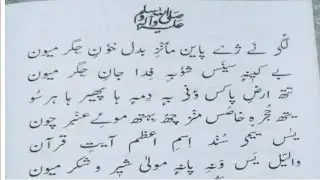 صلی اللہ علیہ وآلہ وسلم
لگو نے ژے پاین مانٛز بدل خوٗنِ جگر میون
بے کینہٕ سیٚنس شوٗبہِ فدا جانِ جگر میون
تتھ ارضِ پاکس وَنی بہٕ دِمہٕ ہا پھیر ہا ہر سو
یتھ حُجرٕہ خاصس منز چھُ بتھ موئے عنبر چون
یٔس یمی سٔند اسم اعظم آیتِ قرآن
والیّل یَس وَنہِ پانہٕ مولیٰ شہر و شکر میون